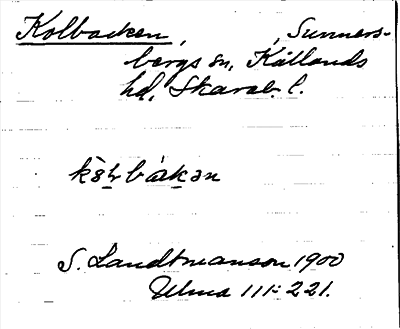 Kolbacken, , Sunners-
bergs sn, Kållands
hd, Skarab. l.
kò̀lbákən
S. Landtmanson 1900
Ulma 111:221.